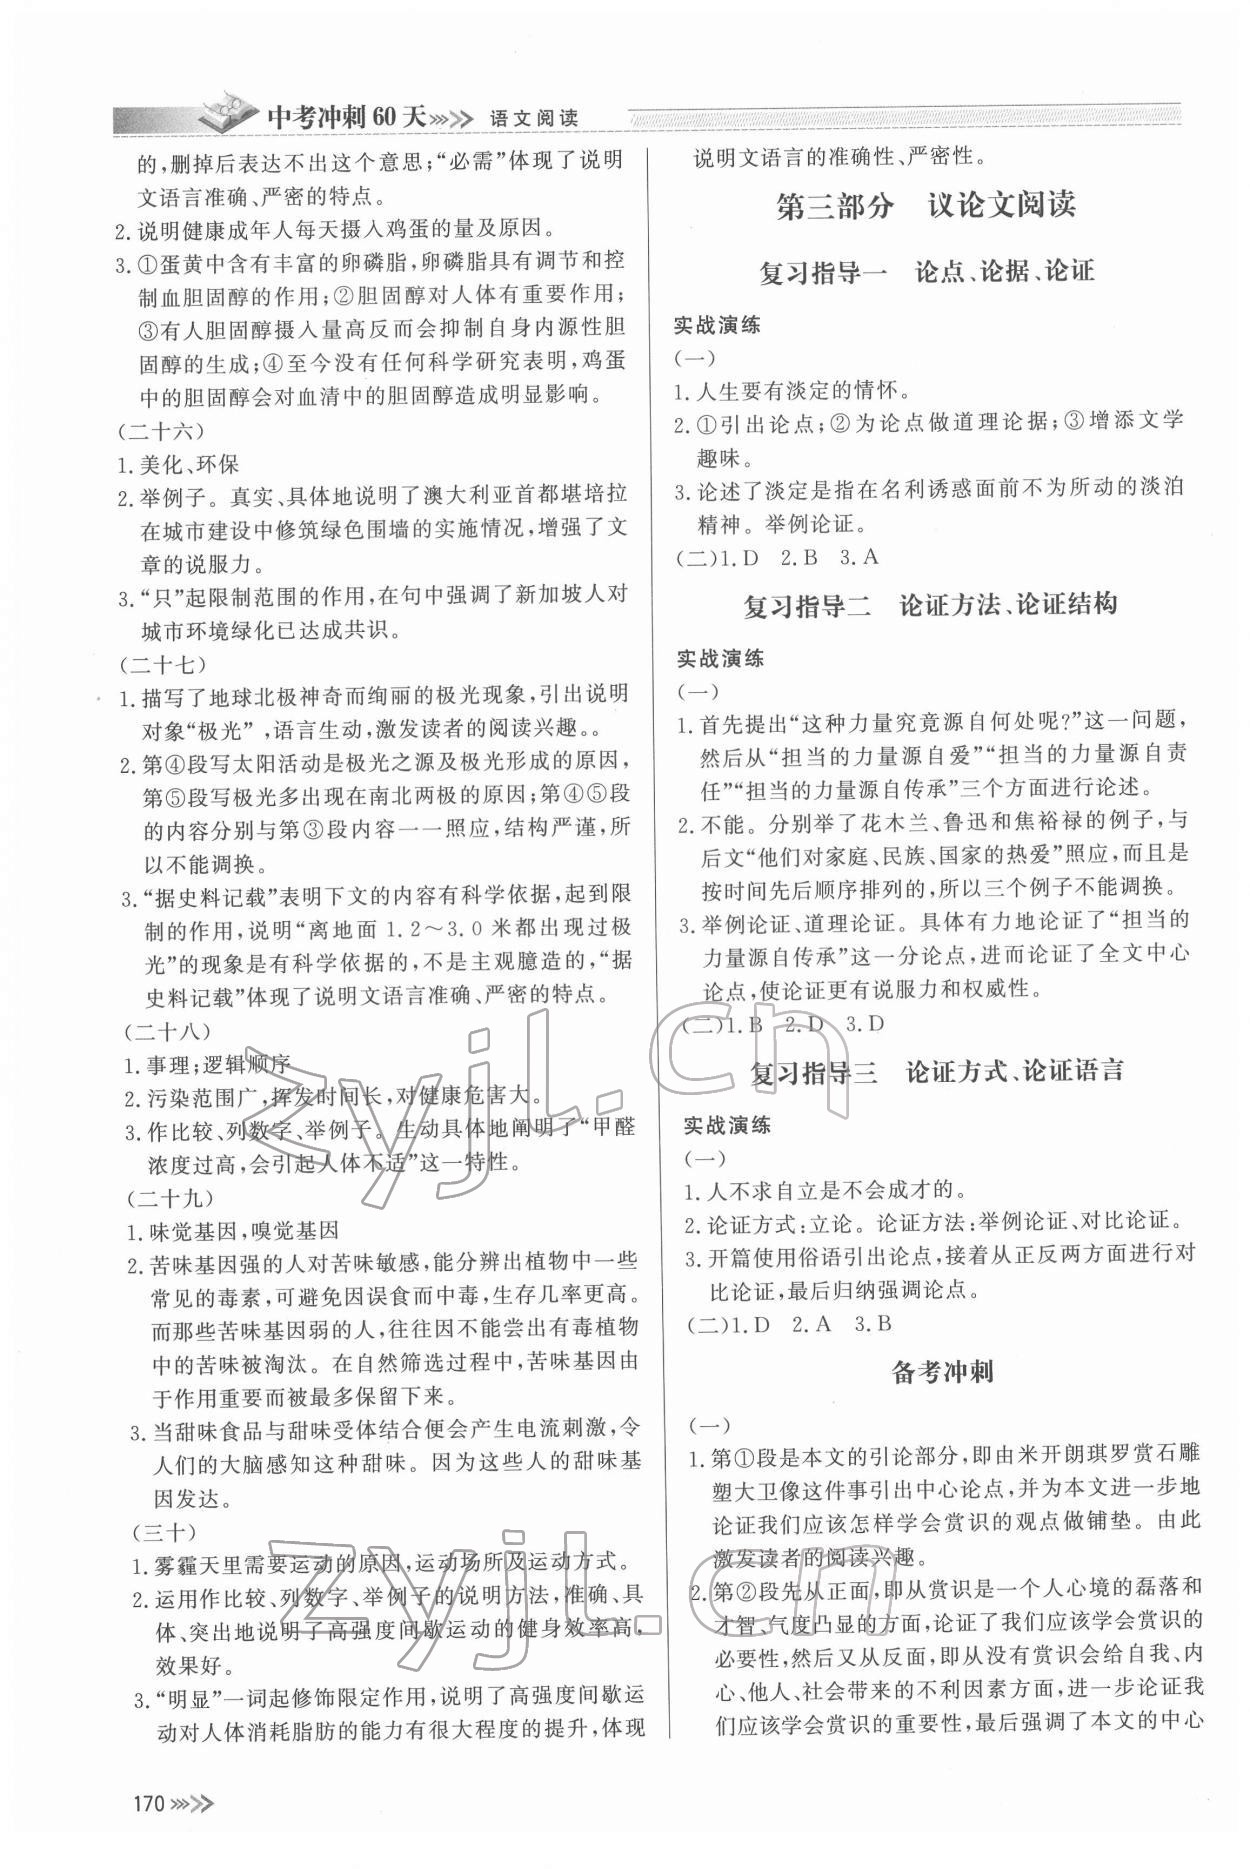 中考冲刺60天 语文阅读
的,删掉后表达不出这个意思;“必需”体现了说明
文语言准确、严密的特点。
2. 说明健康成年人每天摄入鸡蛋的量及原因。
3. ①蛋黄中含有丰富的卵磷脂,卵磷脂具有调节和控
制血胆固醇的作用;②胆固醇对人体有重要作用;
③有人胆固醇摄入量高反而会抑制自身内源性胆
固醇的生成;④至今没有任何科学研究表明,鸡蛋
中的胆固醇会对血清中的胆固醇造成明显影响。
(二十六)
1. 美化、环保
2. 举例子。真实、具体地说明了澳大利亚首都堪培拉
在城市建设中修筑绿色围墙的实施情况,增强了文
章的说服力。
3. “只”起限制范围的作用,在句中强调了新加坡人对
城市环境绿化已达成共识。
(二十七)
1. 描写了地球北极神奇而绚丽的极光现象,引出说明
对象“极光”,语言生动,激发读者的阅读兴趣。。
2. 第④段写太阳活动是极光之源及极光形成的原因,
第⑤段写极光多出现在南北两极的原因;第④⑤段
的内容分别与第③段内容一一照应,结构严谨,所
以不能调换。
3. “据史料记载”表明下文的内容有科学依据,起到限
制的作用,说明“离地面1.2～3.0米都出现过极
光”的现象是有科学依据的,不是主观臆造的,“据
史料记载”体现了说明文语言准确、严密的特点。
(二十八)
1. 事理;逻辑顺序
2. 污染范围广,挥发时间长,对健康危害大。
3. 作比较、列数字、举例子。生动具体地阐明了“甲醛
浓度过高,会引起人体不适”这一特性。
(二十九)
1. 味觉基因,嗅觉基因
2. 苦味基因强的人对苦味敏感,能分辨出植物中一些
常见的毒素,可避免因误食而中毒,生存几率更高。
而那些苦味基因弱的人,往往因不能尝出有毒植物
中的苦味被淘汰。在自然筛选过程中,苦味基因由
于作用重要而被最多保留下来。
3. 当甜味食品与甜味受体结合便会产生电流刺激,令
人们的大脑感知这种甜味。因为这些人的甜味基
因发达。
(三十)
1. 雾霾天里需要运动的原因,运动场所及运动方式。
2. 运用作比较、列数字、举例子的说明方法,准确、具
体、突出地说明了高强度间歇运动的健身效率高,
效果好。
3. “明显”一词起修饰限定作用,说明了高强度间歇运
动对人体消耗脂肪的能力有很大程度的提升,体现
说明文语言的准确性、严密性。
第三部分 议论文阅读
复习指导一 论点、论据、论证
实战演练
(一)
1. 人生要有淡定的情怀。
2. ①引出论点;②为论点做道理论据;③增添文学
趣味。
3. 论述了淡定是指在名利诱惑面前不为所动的淡泊
精神。举例论证。
(二)1. D 2. B 3. A
复习指导二 论证方法、论证结构
实战演练
(一)
1. 首先提出“这种力量究竟源自何处呢?”这一问题,
然后从“担当的力量源自爱”“担当的力量源自责
任”“担当的力量源自传承”三个方面进行论述。
2. 不能。分别举了花木兰、鲁迅和焦裕禄的例子,与
后文“他们对家庭、民族、国家的热爱”照应,而且是
按时间先后顺序排列的,所以三个例子不能调换。
3. 举例论证、道理论证。具体有力地论证了“担当的
力量源自传承”这一分论点,进而论证了全文中心
论点,使论证更有说服力和权威性。
(二)1. B 2. D 3. D
复习指导三 论证方式、论证语言
实战演练
(一)
1. 人不求自立是不会成才的。
2. 论证方式:立论。论证方法:举例论证、对比论证。
3. 开篇使用俗语引出论点,接着从正反两方面进行对
比论证,最后归纳强调论点。
(二)1. D 2. A 3. B
备考冲刺
(一)
1. 第①段是本文的引论部分,即由米开朗琪罗赏石雕
塑大卫像这件事引出中心论点,并为本文进一步地
论证我们应该怎样学会赏识的观点做铺垫。由此
激发读者的阅读兴趣。
2. 第②段先从正面,即从赏识是一个人心境的磊落和
才智、气度凸显的方面,论证了我们应该学会赏识的
必要性,然后又从反面,即从没有赏识会给自我、内
心、他人、社会带来的不利因素方面,进一步论证我
们应该学会赏识的重要性,最后强调了本文的中心
170
zyjl.cn
zyjl.cn